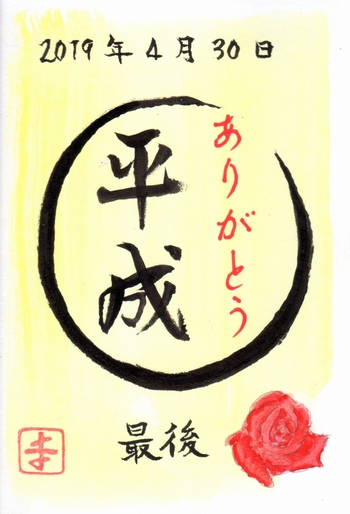 2019年4月30日
ありがとう
平成
最後